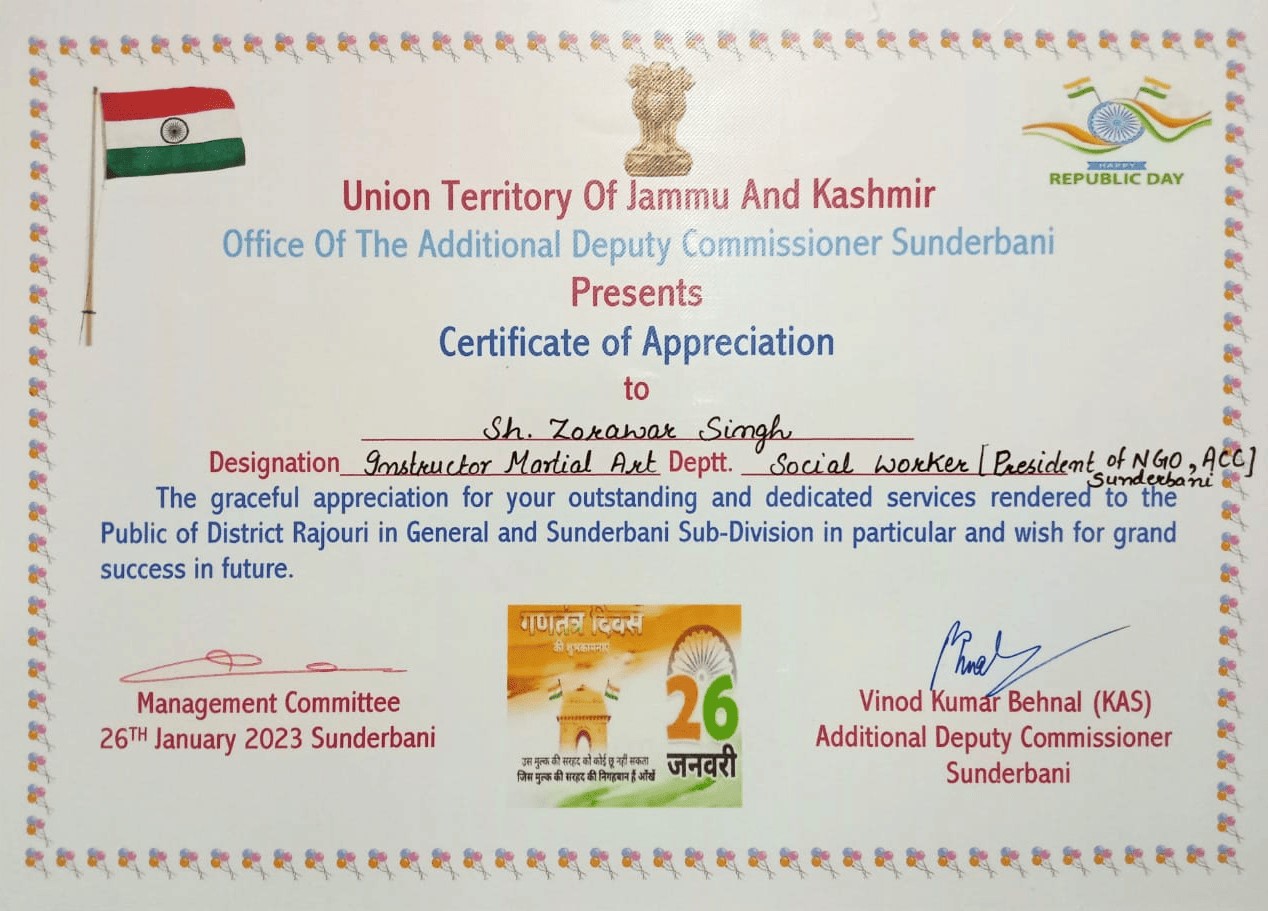 HAPPY
REPUBLIC DAY
Union Territory Of Jammu And Kashmir
Office Of The Additional Deputy Commissioner Sunderbani
Presents
Certificate of Appreciation
to
Sh. Zorawar Singh
Designation Instructor Martial Art Deptt. Social Worker [President of NGO, ACC]
Sunderbani
The graceful appreciation for your outstanding and dedicated services rendered to the
Public of District Rajouri in General and Sunderbani Sub-Division in particular and wish for grand
success in future.
गणतंत्र दिवस
की शुभकामनाएं
26
जनवरी
उस मुल्क की सरहद को कोई छू नहीं सकता
जिस मुल्क की सरहद की निगहबान हैं आँखें
Management Committee
26TH January 2023 Sunderbani
Vinod Kumar Behnal (KAS)
Additional Deputy Commissioner
Sunderbani